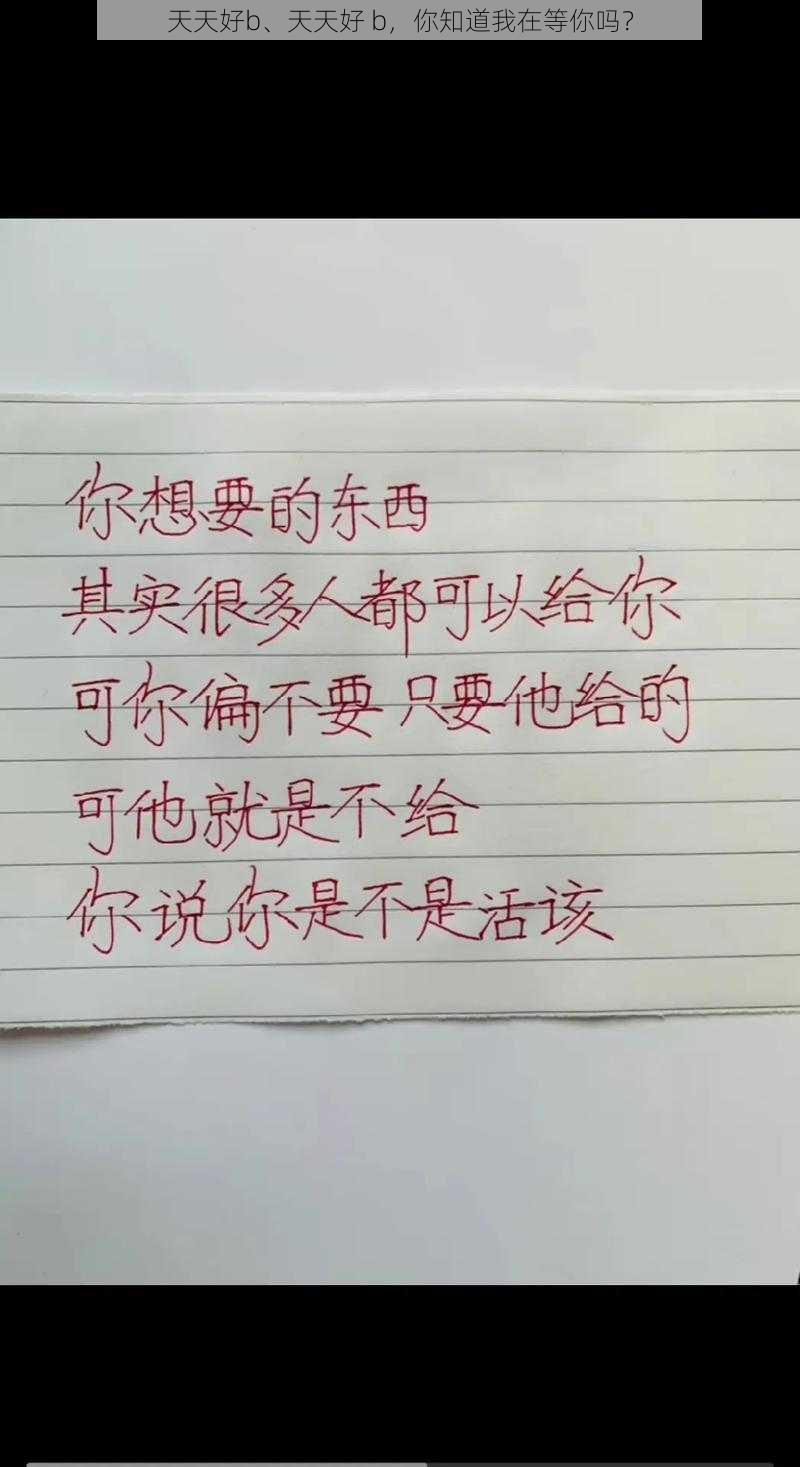 天天好b、天天好 b，你知道我在等你吗？
你想要的东西
其实很多人都可以给你
可你偏不要 只要他给的
可他就是不给
你说你是不是活该